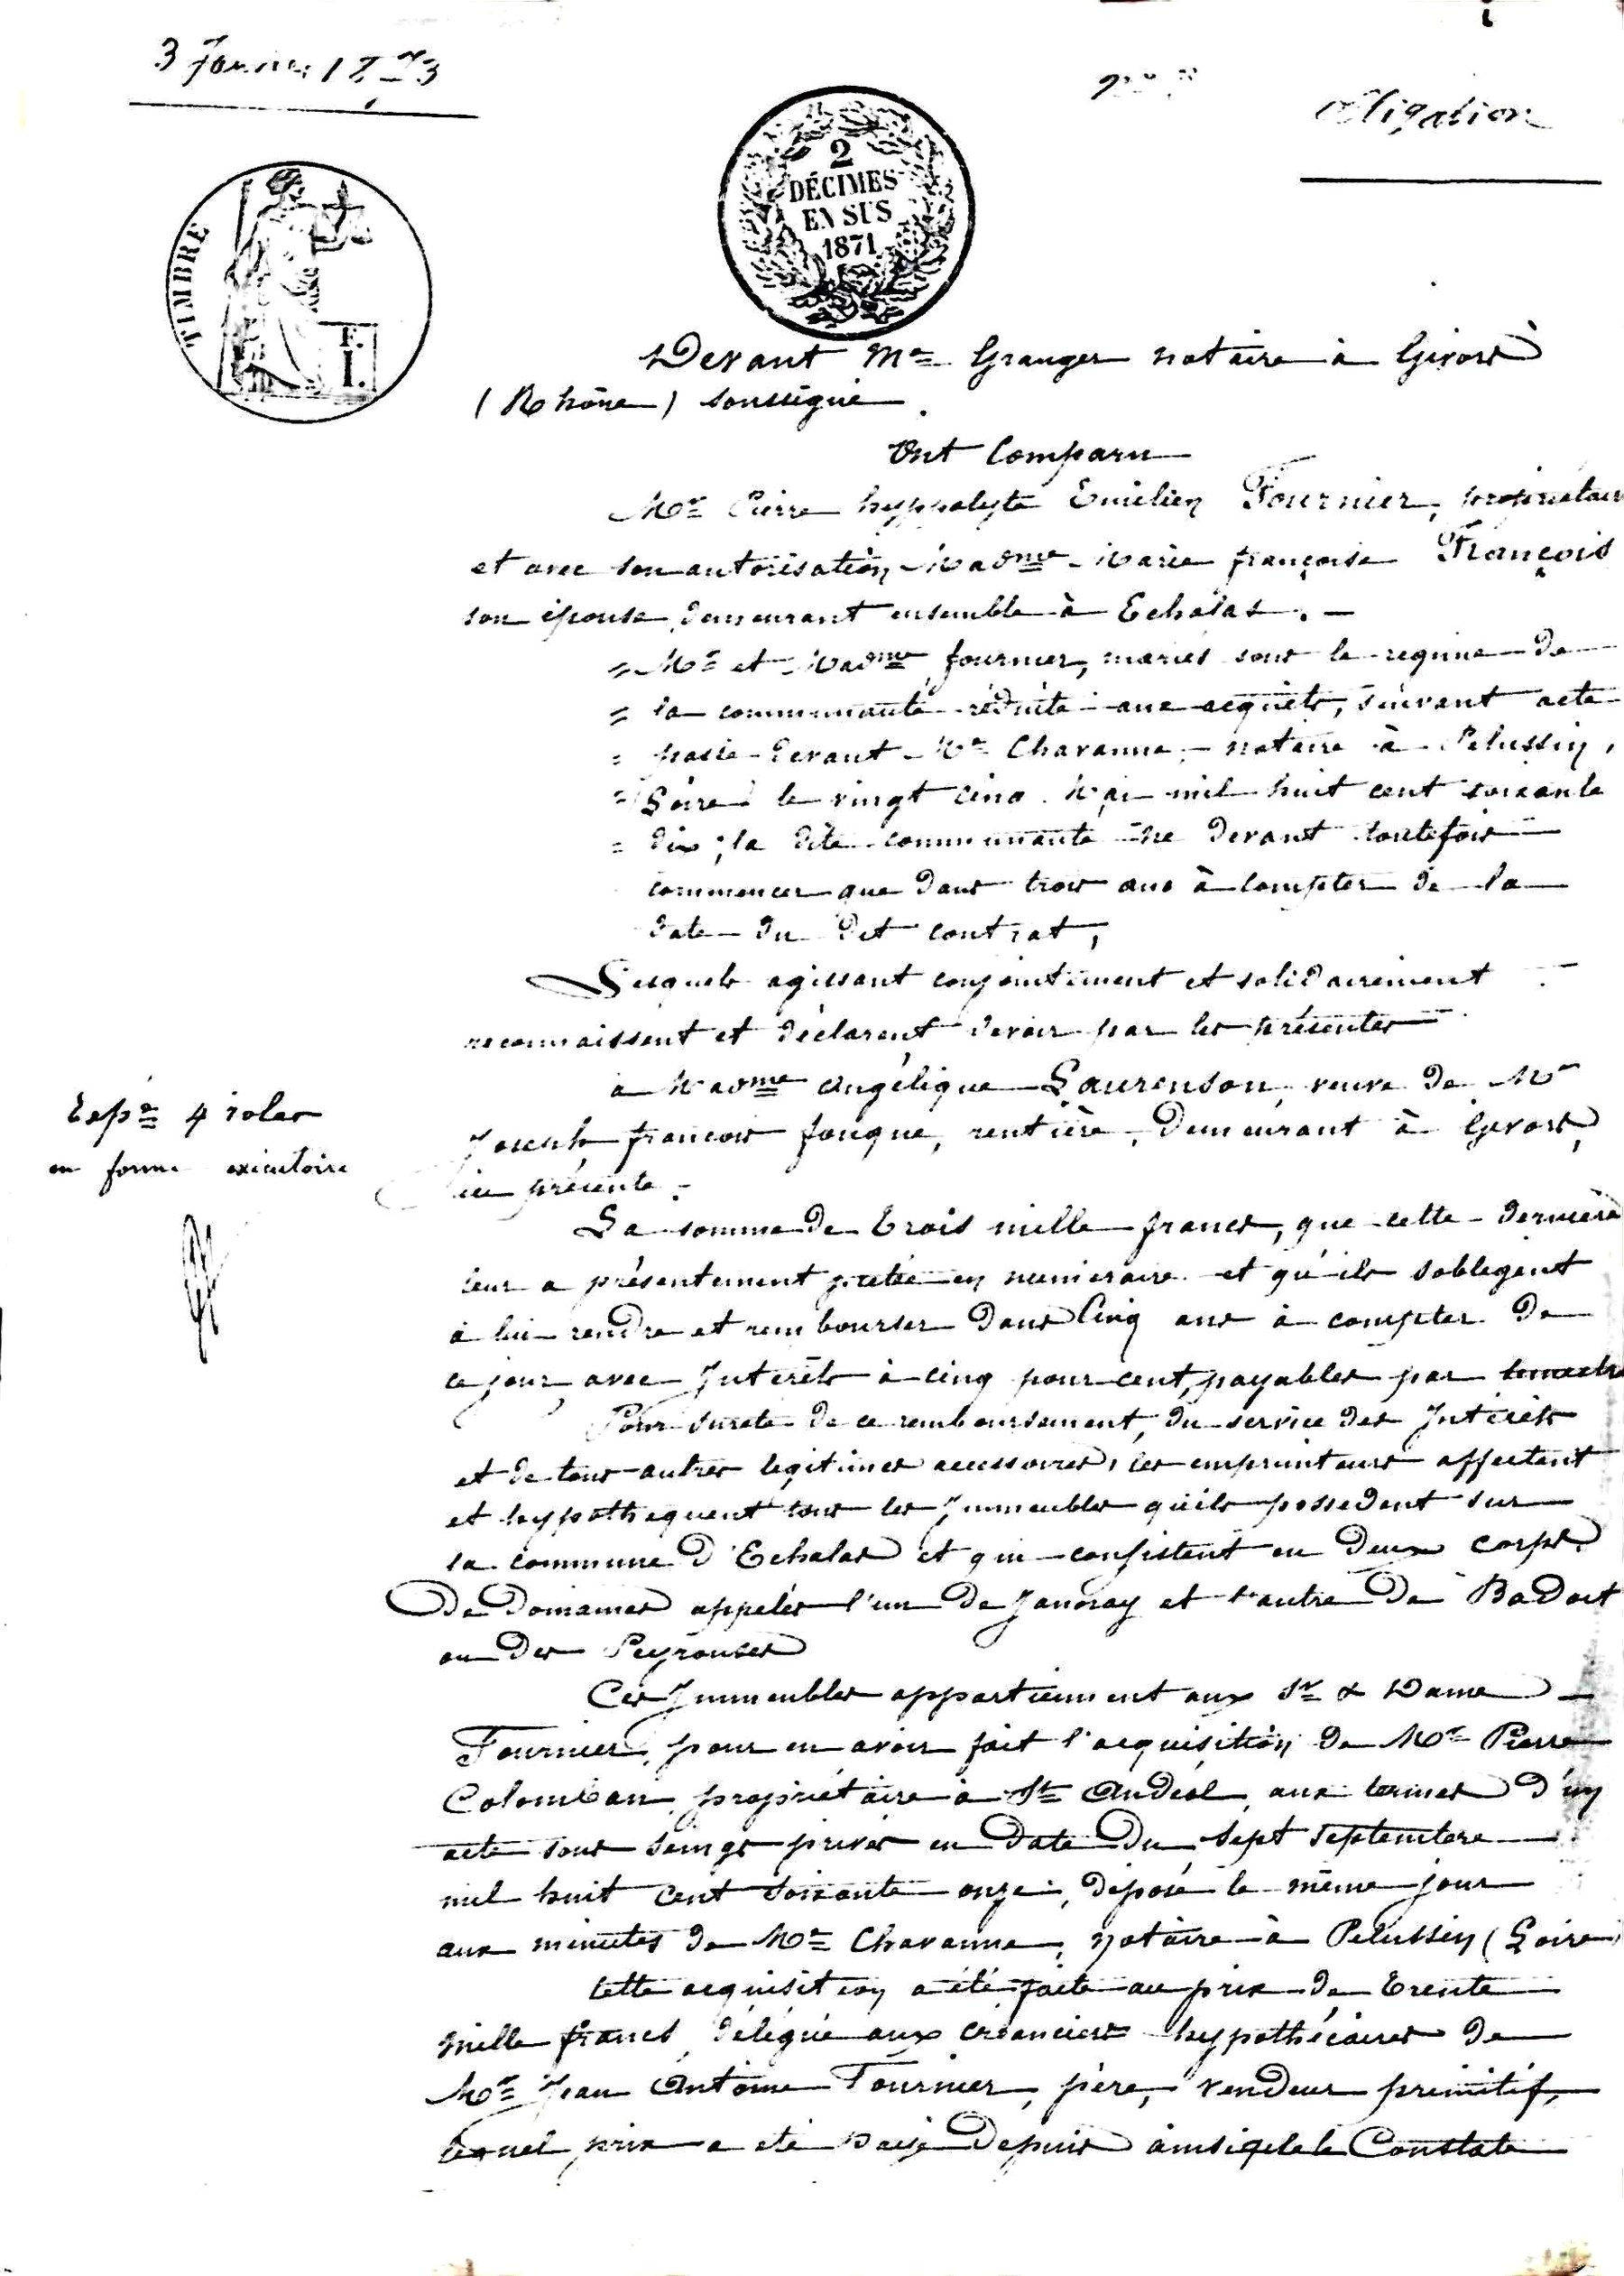 3 Janvier 1873
obligation
TIMBRE
F.
I.
2
DÉCIMES
EN SUS
1871
Devant Me Granger notaire à Givors
(Rhône) soussigné.
Ont Comparu
Mr Pierre hyppolyte Emilien Fournier, propriétaire
et avec son autorisation Madme Marie françoise François
son épouse, demeurant ensemble à Echalas. —
= Mr et Madme fournier, mariés sous le regime de
= la communauté réduite aux acquets, suivant acte
= passé devant Me Chavanne, notaire à Pelussin,
= (Loire) le vingt cinq Mai mil huit cent soixante
= dix ; la dite communauté ne devant toutefois
commencer que dans trois ans à compter de la
date du dit contrat,
Lesquels agissant conjointement et solidairement
reconnaissent et déclarent devoir par les présentes
à Madme Angélique Laurenson, veuve de Mr
Joseph françois fouque, rentière, demeurant à Givors,
ici présente.
Expn 4 roles
en forme exécutoire
La somme de Trois mille francs, que cette dernière
leur a présentement pretée en numéraire et qu'ils s'obligent
à lui rendre et rembourser dans Cinq ans à compter de
ce jour avec Intérêts à cinq pour cent, payables par semestre
Pour sureté de ce remboursement, du service des Intérêts
et de tous autres légitimes accessoires, les emprunteurs affectent
et hypothèquent tous les Immeubles qu'ils possedent sur
la commune d'Echalas et qui consistent en deux corps
de domaines appelés l'un de Janoray et l'autre de Badoit
ou des Peyrouses
Ces Immeubles appartiennent aux Sr & Dame
Fournier, pour en avoir fait l'acquisition de Mr Pierre
Colomban, propriétaire à St Andéol, aux termes d'un
acte sous seings privés en date du sept septembre
mil huit cent soixante onze, déposé le même jour
aux minutes de Me Chavanne, notaire à Pelussin (Loire)
Cette acquisition a été faite au prix de Trente
mille francs, délégué aux créanciers hypothécaires de
Mr Jean Antoine Fournier, père, vendeur primitif,
Lequel prix a été payé depuis ainsi que le Constate